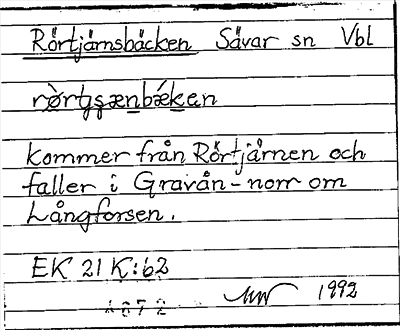 Rörtjärnsbäcken Sävar sn Vbl
rø̀rtʂænbǽken
kommer från Rörtjärnen och
faller i Gravån - norr om
Långforsen.
EK 21 K:62
1992